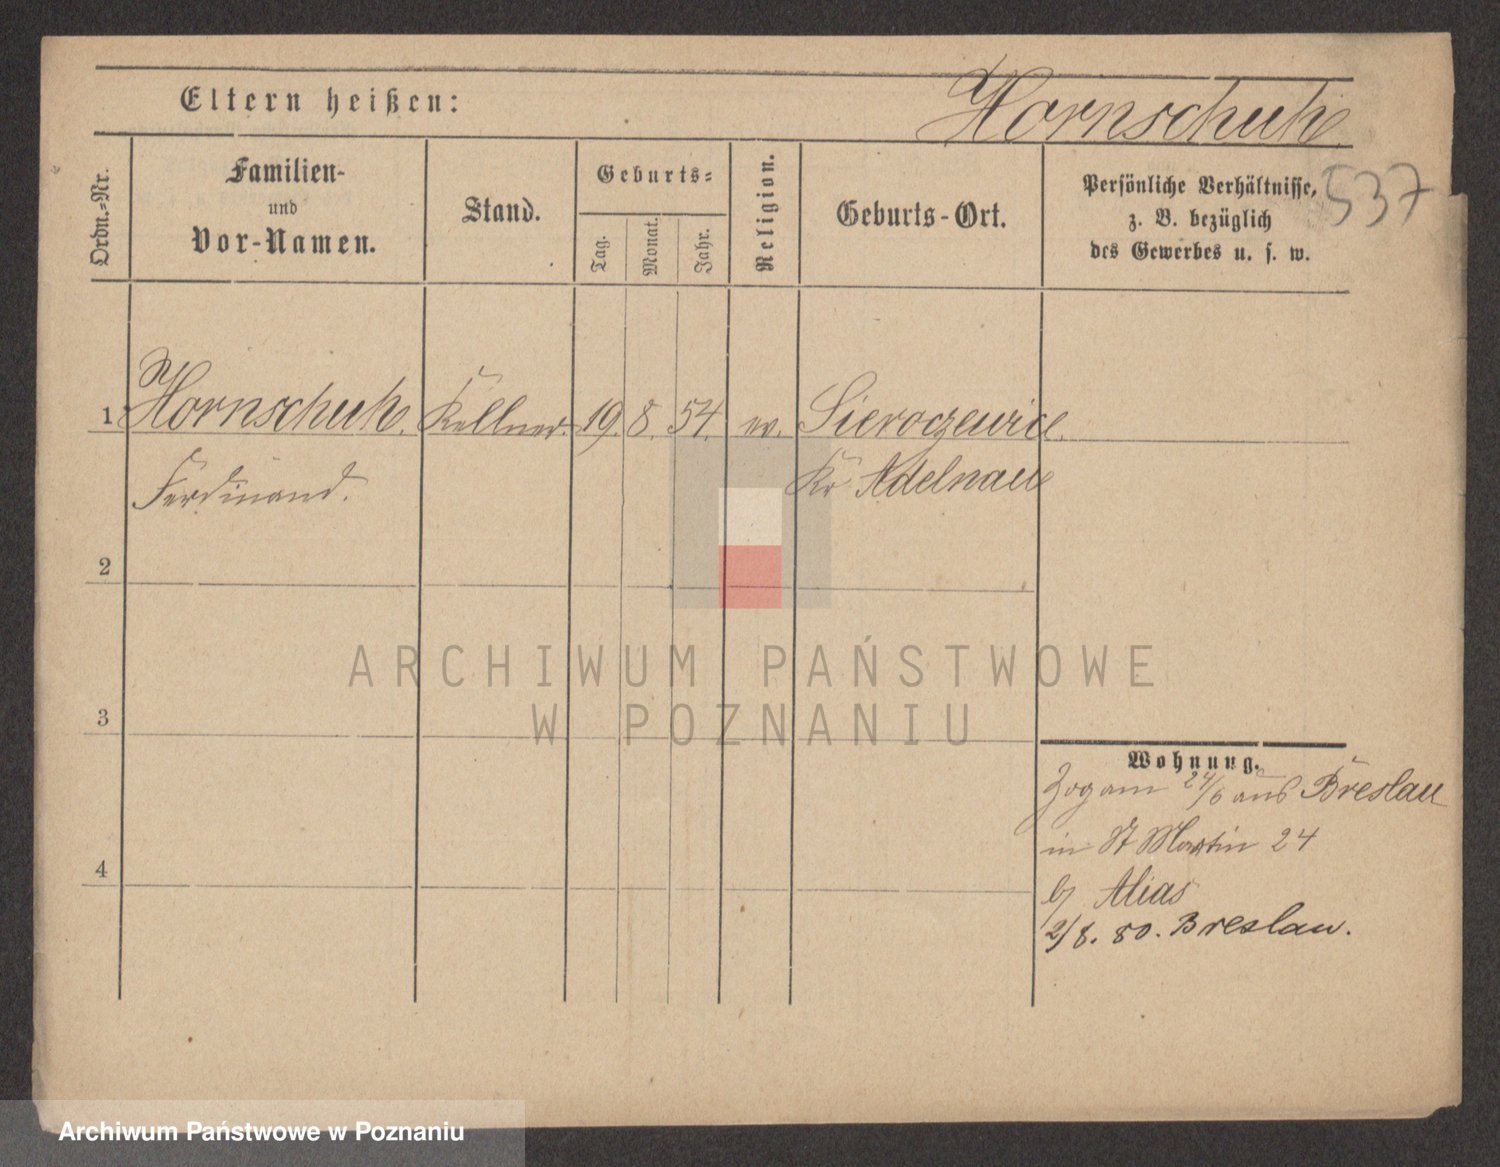 Eltern heißen:
Hornschuh
537
Ordn.-Nr.
Familien-
und
Vor-Namen.
Stand.
Geburts-
Tag.
Monat.
Jahr.
Religion.
Geburts-Ort.
Persönliche Verhältnisse,
z. B. bezüglich
des Gewerbes u. s. w.
1 Hornschuh. Kellner. 19. 8. 54. ev. Sieroczewice
Ferdinand. Kr Adelnau
2
3
4
Wohnung.
Zog am 24/6 aus Breslau
in St Martin 24
b/ Alias
2/8. 80. Breslau.
ARCHIWUM PAŃSTWOWE
W POZNANIU
Archiwum Państwowe w Poznaniu